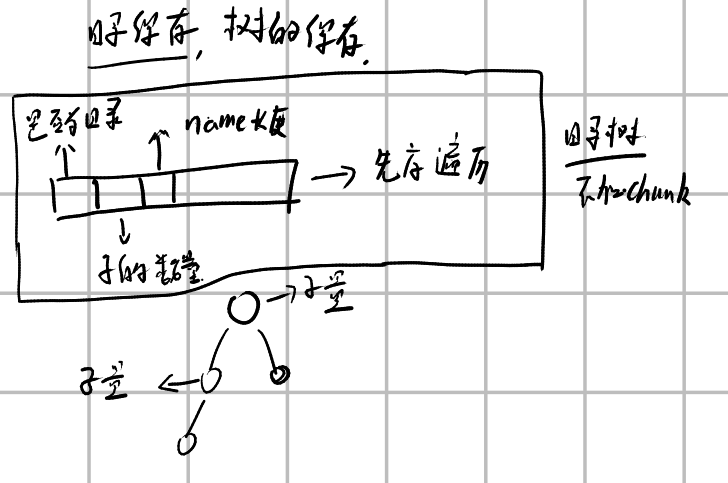 目录保存，树的保存.
是否为目录
name长度
先序遍历
子的数量
目录树
不加chunk
子量
子量